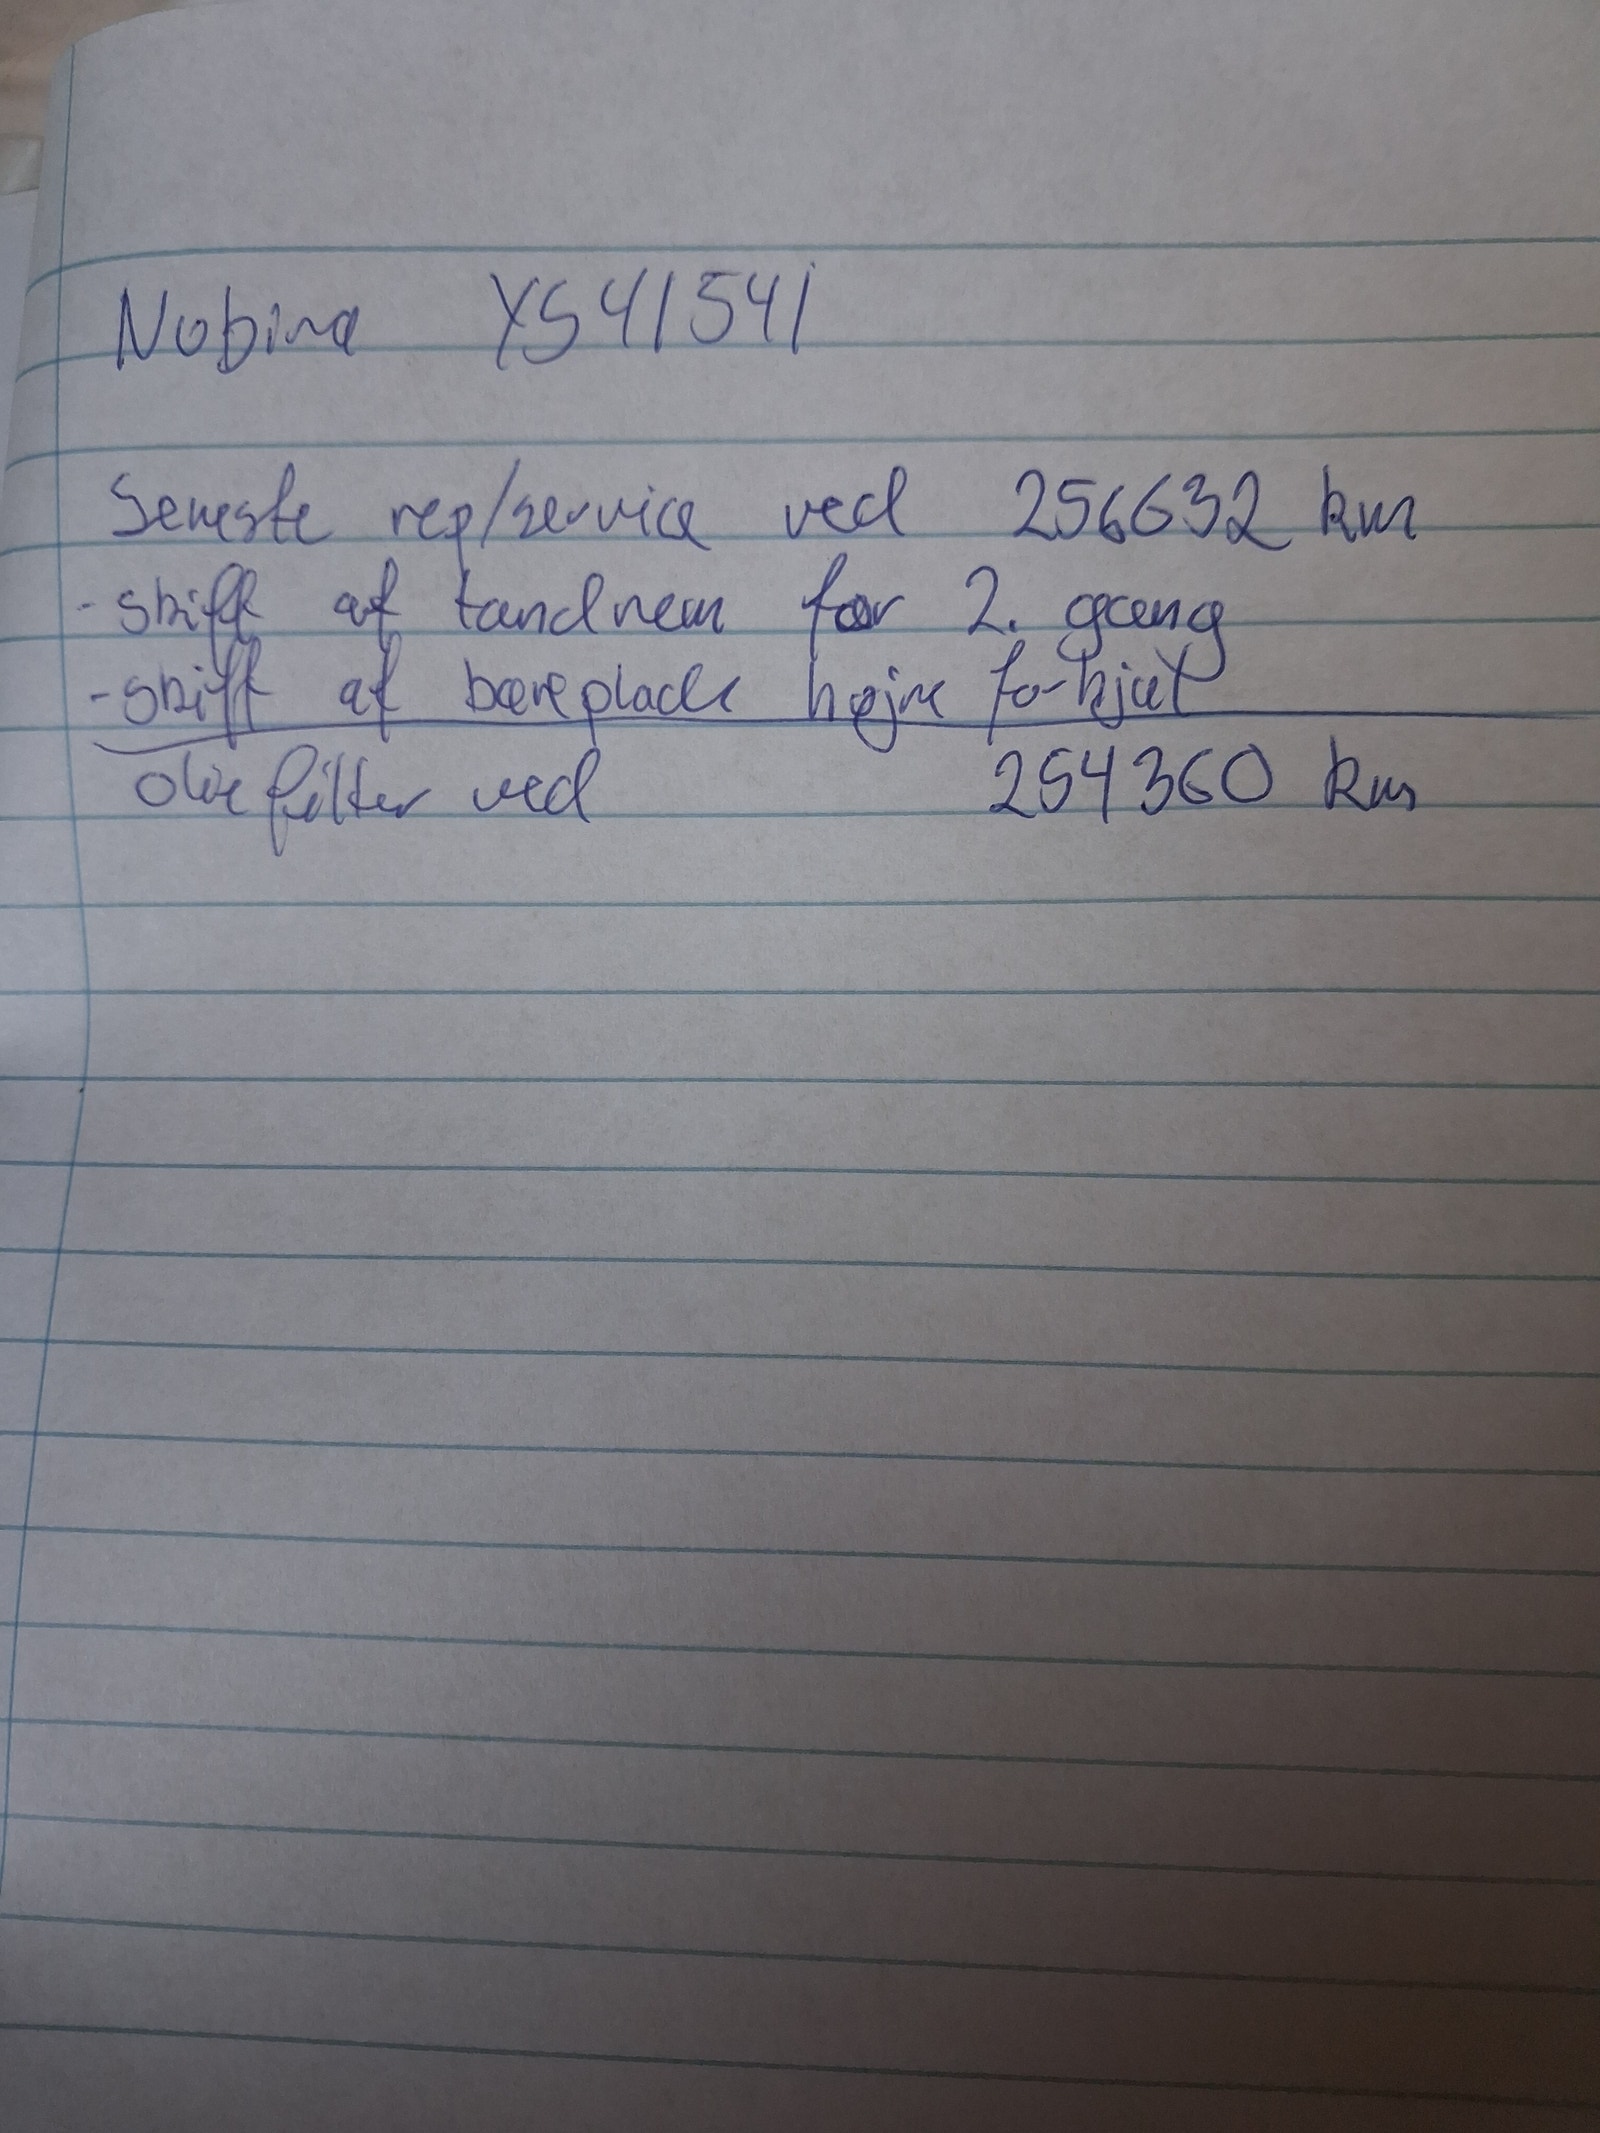 Nobina YS41541
Seneste rep/service ved 256632 km
- skift af tandrem for 2. gang
- skift af bæreplade højre forhjul
oliefilter ved 254360 km